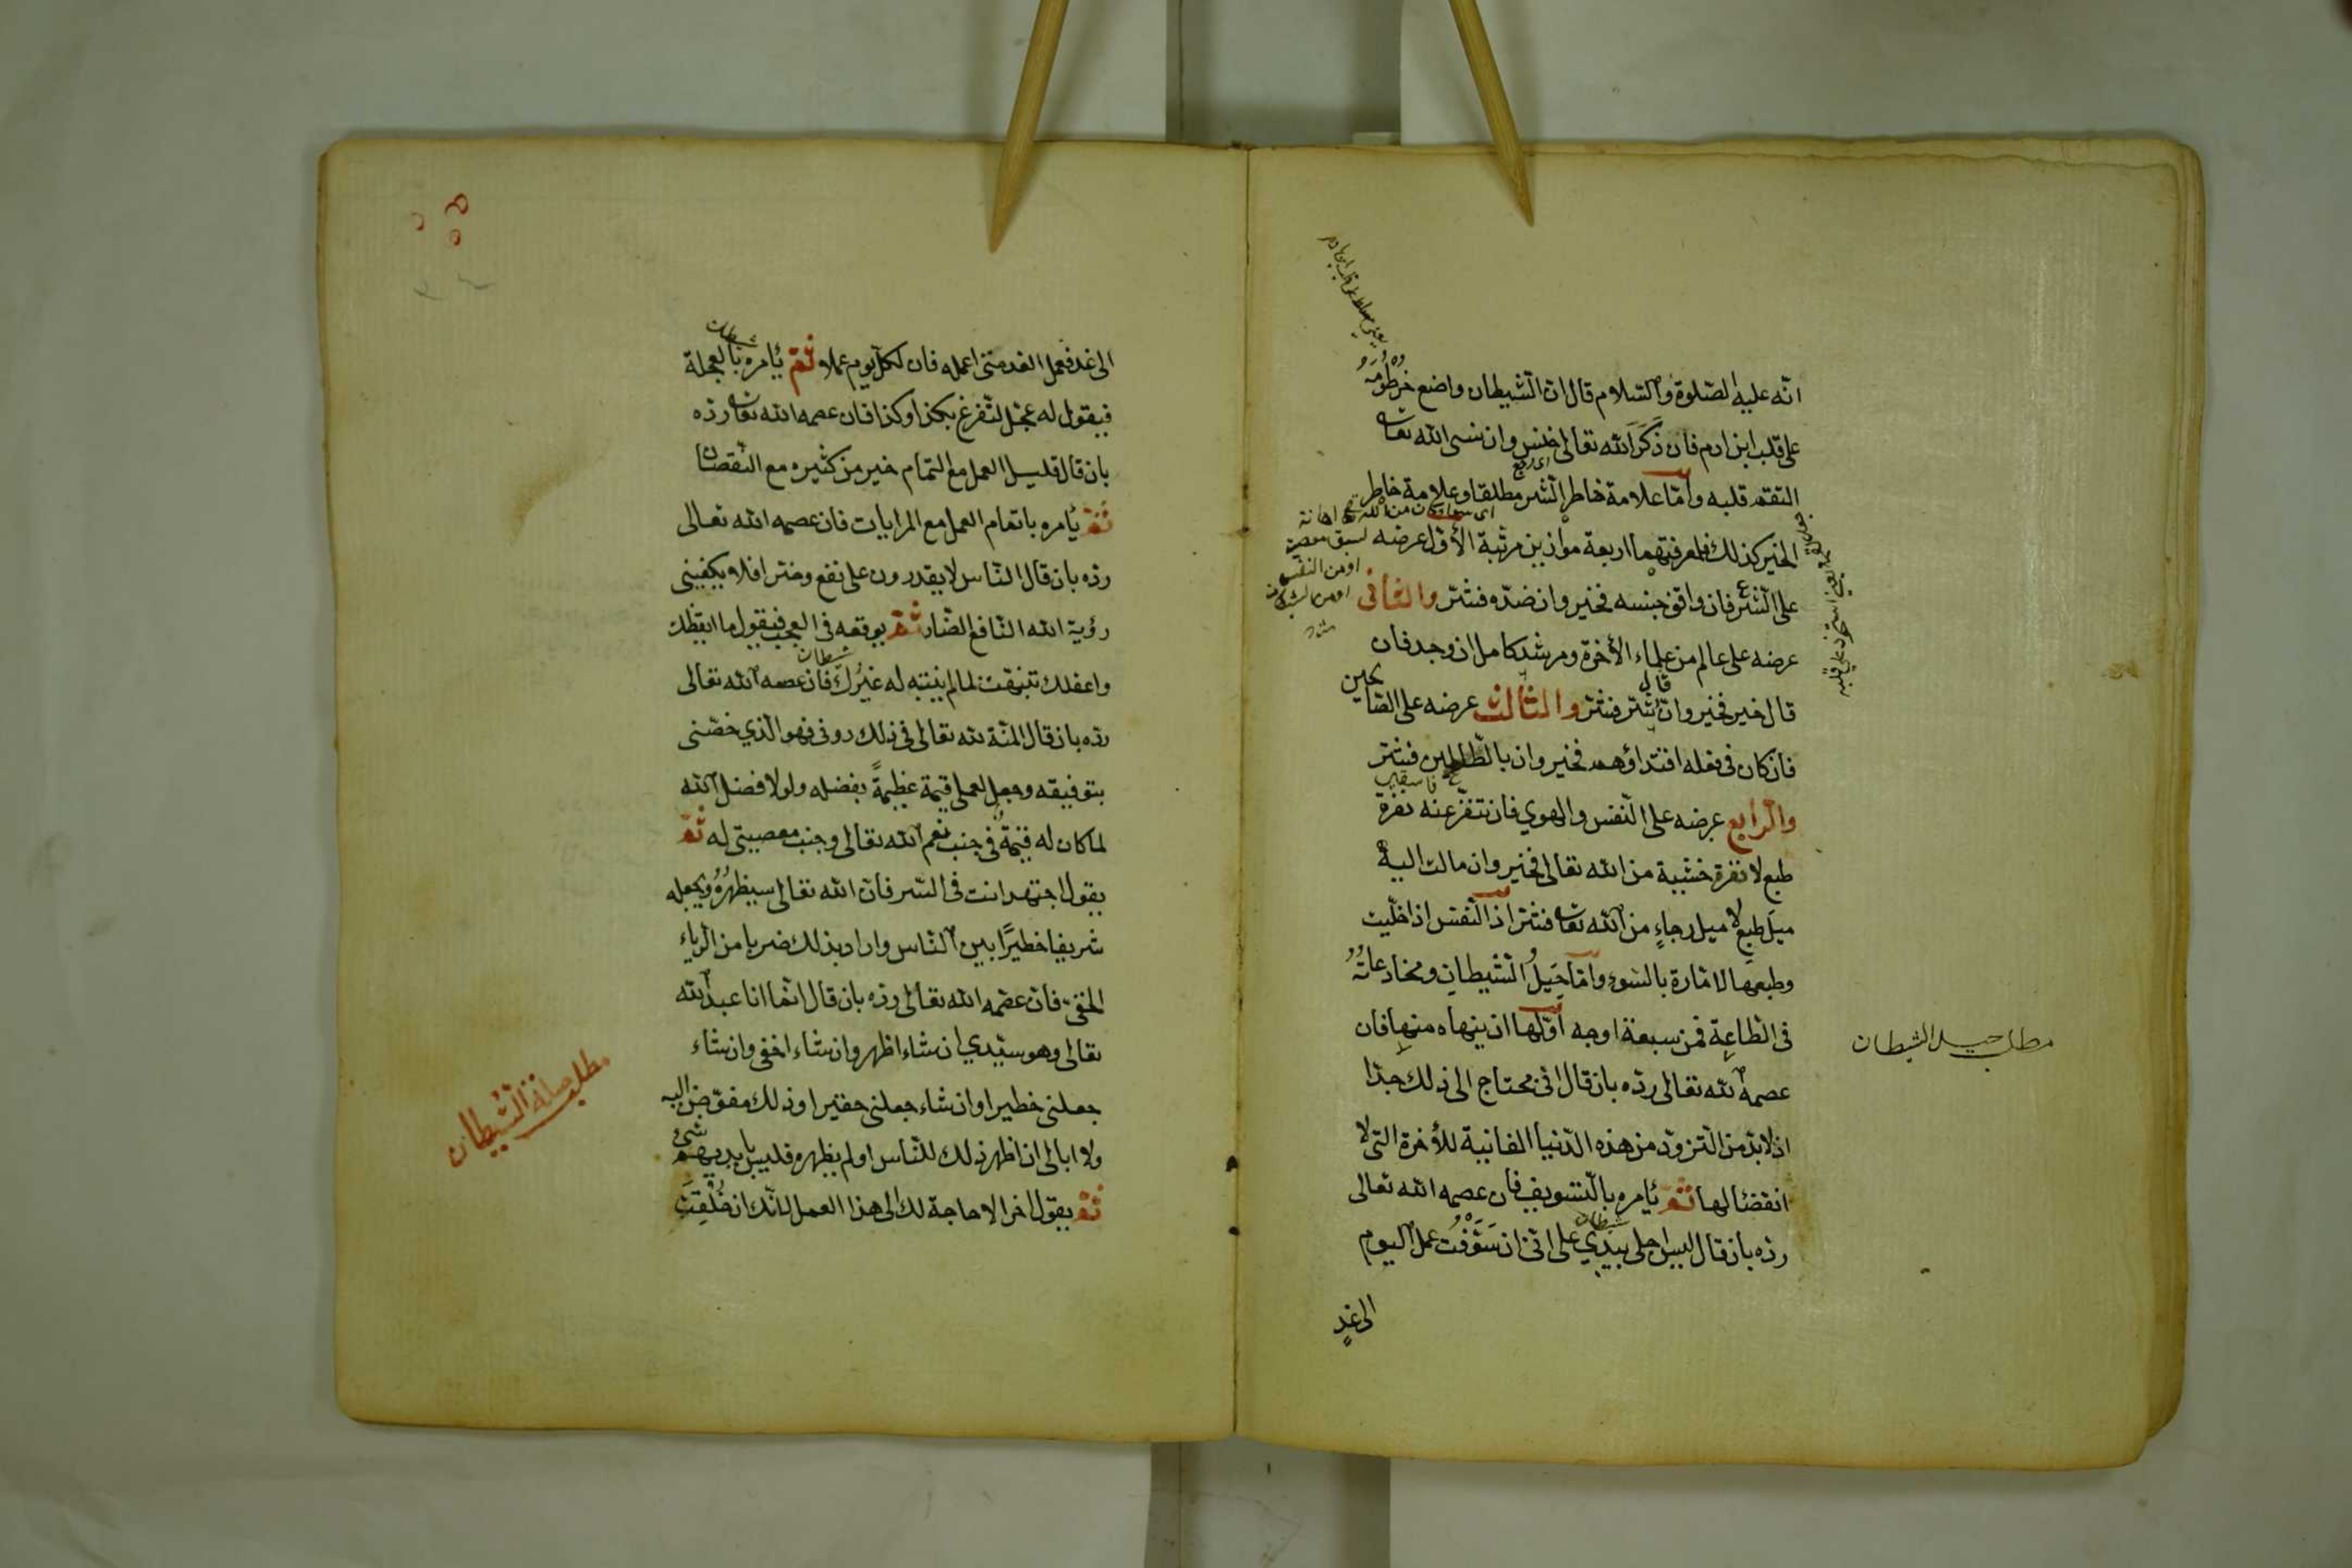 انّه عليه الصّلوة والسّلام قال انّ الشّيطان واضع خُرطُومَه
على قلب ابن ادم فان ذَكَرَ الله تعالى خنس وان نسى الله تعالى
التقم قلبه وامّا علامة خاطر الشّر مطلقا وعلامة خاطر
الخير كذلك فلمعرفتهما اربعة موازين مرتبة الأوّل عرضه
على الشّرع فان وافق جنسه فخير وان ضدّه فشرّ والثّانى
عرضه على عالم من علماء الأخرة ومرشد كامل ان وجد فان
قال خير فخير وان قال شرّ فشرّ والثالث عرضه على الصّالحين
فان كان فى فعله اقتداؤهم فخير وان بالظّالمين فشرّ
والرّابع عرضه على النّفس والهوي فان تنفّر عنه نفرة
طبع لا نفرة خشية من الله تعالى فخير وان مالت اليه
ميلَ طبع لا ميل رجاءٍ من الله تعالى فشرّ اذ النّفس اذا خلّيت
وطبعها لامّارة بالسّوء وامّا حِيَلُ الشّيطان ومخادعاتُهُ
فى الطّاعة فمن سبعة اوجه اوّلها ان ينهاه منها فان
عصمه الله تعالى ردّه بان قال انّى محتاج الى ذلك جدّا
اذ لا بدّ من التّزوّد من هذه الدّنيا الفانية للأخرة التى لا
انقضأ لها ثمّ يأمره بالتّسويف فان عصمه الله تعالى
ردّه بان قال ليس اجلى بيَدِي على انّى ان سَوَّفْتُ عمل اليوم
الى غدٍ
اى رجع
او من النفس
او من الشيطان
فاسقين
شيطان
مطلب حيل الشيطان
الى غد فعمل الغد متى اعمله فان لكلّ يوم عملا ثمّ يأمره بالعجلة
فيقول له عجّل لتفرغ بكذا وكذا فان عصمه الله تعالى ردّه
بان قال قليل العمل مع التّمام خير من كثيره مع النّقصان
ثمّ يأمره باتمام العمل مع المرايات فان عصمه الله تعالى
ردّه بان قال النّاس لا يقدرون على نفع وضرّ افلا يكفينى
رؤية الله النّافع الضّار ثمّ يوقعه فى العجب فيقول ما ايقظك
واعقلك تنبّهت لما لم ينتبه له غَيْرُكَ فان عصمه الله تعالى
ردّه بان قال المنّة لله تعالى فى ذلك دونى فهو الّذي خصّنى
بتوفيقه وجعل لعملى قيمة عظيمةً بفضله ولولا فضل الله
لما كان له قيمةٌ فى جنب نعم الله تعالى وجنب معصيتى له ثمّ
يقول اجتهد انت فى السّر فانّ الله تعالى سيظهرُهُ ويجعله
شريفا خطيرًا بين النّاس واراد بذلك ضربا من الرّياء
الخفىّ فان عصمه الله تعالى ردّه بان قال انّما انا عبد الله
تعالى وهو سيّدي ان شاء اظهر وان شاء اخفى وان شاء
جعلنى خطيرا وان شاء جعلنى حقيرا وذلك مفوّض اليه
ولا ابالى ان اظهر ذلك للنّاس او لم يظهره فليس بايديهم شئ
ثمّ يقول اخرا لا حاجة لك الى هذا العمل لانّك ان خُلِقْتَ
شيطان
شيطان
مطلب حيلة الشّيطان